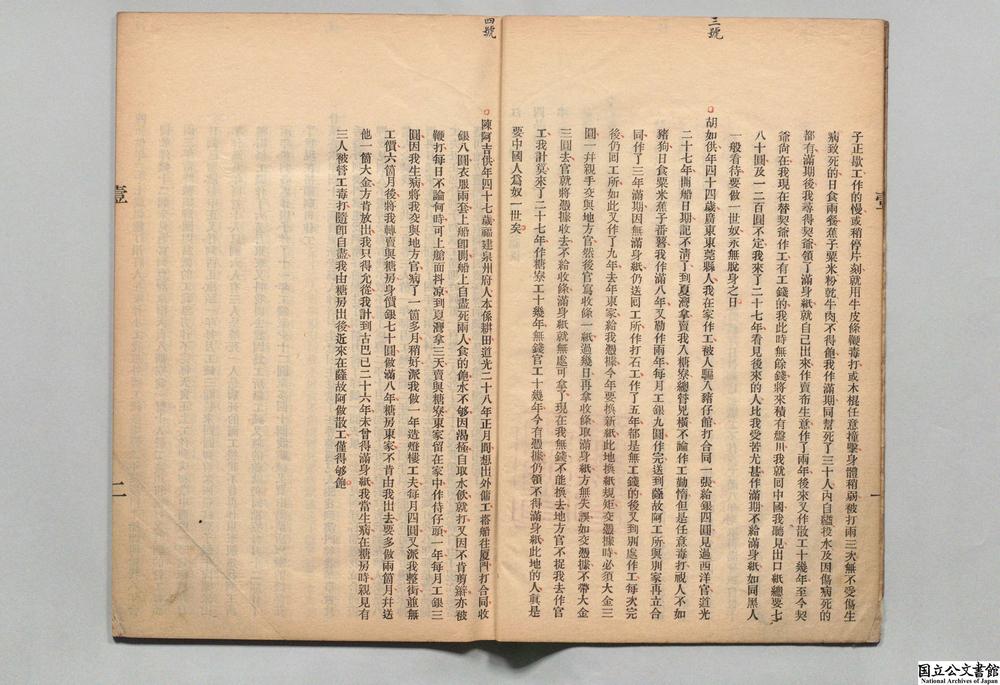 三號
子正墩工作的慢或稍停片刻就用牛皮條鞭毒打或木棍任意撞擊身體稍弱被打兩三次無不受傷生
病致死的日食兩餐蕉子粟米粉乾牛肉不得飽我作滿期同幫死了三十人內自縊投水及因傷病死的
都有滿期後我尋得契爺領了滿身紙就自己出來作賣布生意作了兩年後來又作散工十幾年至今契
爺尚在我現在替契爺作工有工錢的我此時無餘錢將來積有盤川我就回中國我聽見出口紙總要七
八十圓及一二百圓不定我來了二十七年看見後來的人比我受苦尤甚作滿期不給滿身紙如同黑人
一般看待要做一世奴永無脫身之日
胡如供年四十四歲廣東東莞縣人我在家作工被人騙入豬仔館打合同一張給銀四圓見過西洋官道光
二十七年開船日期記不清了到夏灣拿賣我入糖寮總管兇橫不論作工勤惰但是任意毒打視人不如
豬狗日食粟米蕉子番薯我作滿八年又勒作兩年每月工銀九圓作完送到薩故阿工所與別家再立合
同作了三年滿期因無滿身紙仍送回工所作打石工作了五年都是無工錢的後又到別處作工每次完
後仍回工所如此又作了九年去年東家給我憑據今年要換新紙此地換紙規矩交憑據時必須大金三
圓一幷親手交與地方官然後官寫收條一紙過幾日再拿收條取滿身紙方無失誤如交憑據不帶大金
三圓去官就將憑據收去不給收條滿身紙就無處可拿了現在我無錢不能換去地方官不捉我去作官
工我計算來了二十七年作糖寮工十幾年無錢官工十幾年今有憑據仍領不得滿身紙此地的人眞是
要中國人爲奴一世矣
四號
陳阿吉供年四十七歲福建泉州府人本係耕田道光二十八年正月間想出外傭工搭船往厦門打合同收
銀八圓衣服兩套上船卽開船上自盡死兩人食的飽水不够因渴極自取水飲就打又因不肯剪辮亦被
鞭打每日不論何時可上艙面抖凉到夏灣拿三天賣與糖寮東家留在家中作侍仔頭一年每月工銀三
圓因我生病將我交與地方官病了一箇多月稍好派我做一年造燈樓工夫每月四圓又派我整街並無
工價六箇月後將我轉賣與糖房身價銀七十圓做滿八年糖房東家不肯由我出去要多做兩箇月幷送
他一箇大金方肯放出我只得允從我計到古巴已二十六年未曾得滿身紙我當生病在糖房時親見有
三人被管工毒打隨卽自盡我由糖房出後近來在薩故阿做散工僅得够飽
壹
一
壹
二
国立公文書館
National Archives of Japan